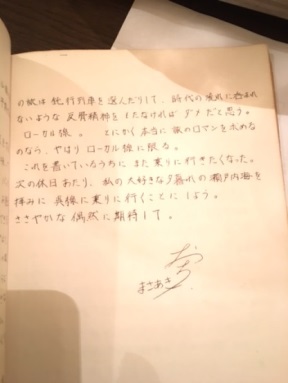 の旅は鈍行列車を選んだりして、時代の流れに呑まれ
ないような反骨精神をもたなければダメだと思う。
ローカル線。 とにかく本当に旅のロマンを求める
のなら、やはりローカル線に限る。
これを書いているうちにまた乗りに行きたくなった。
次の休日あたり、私の大好きな夕暮れの瀬戸内海を
拝みに呉線に乗りに行くことにしよう。
ささやかな偶然に期待して。
まさあき